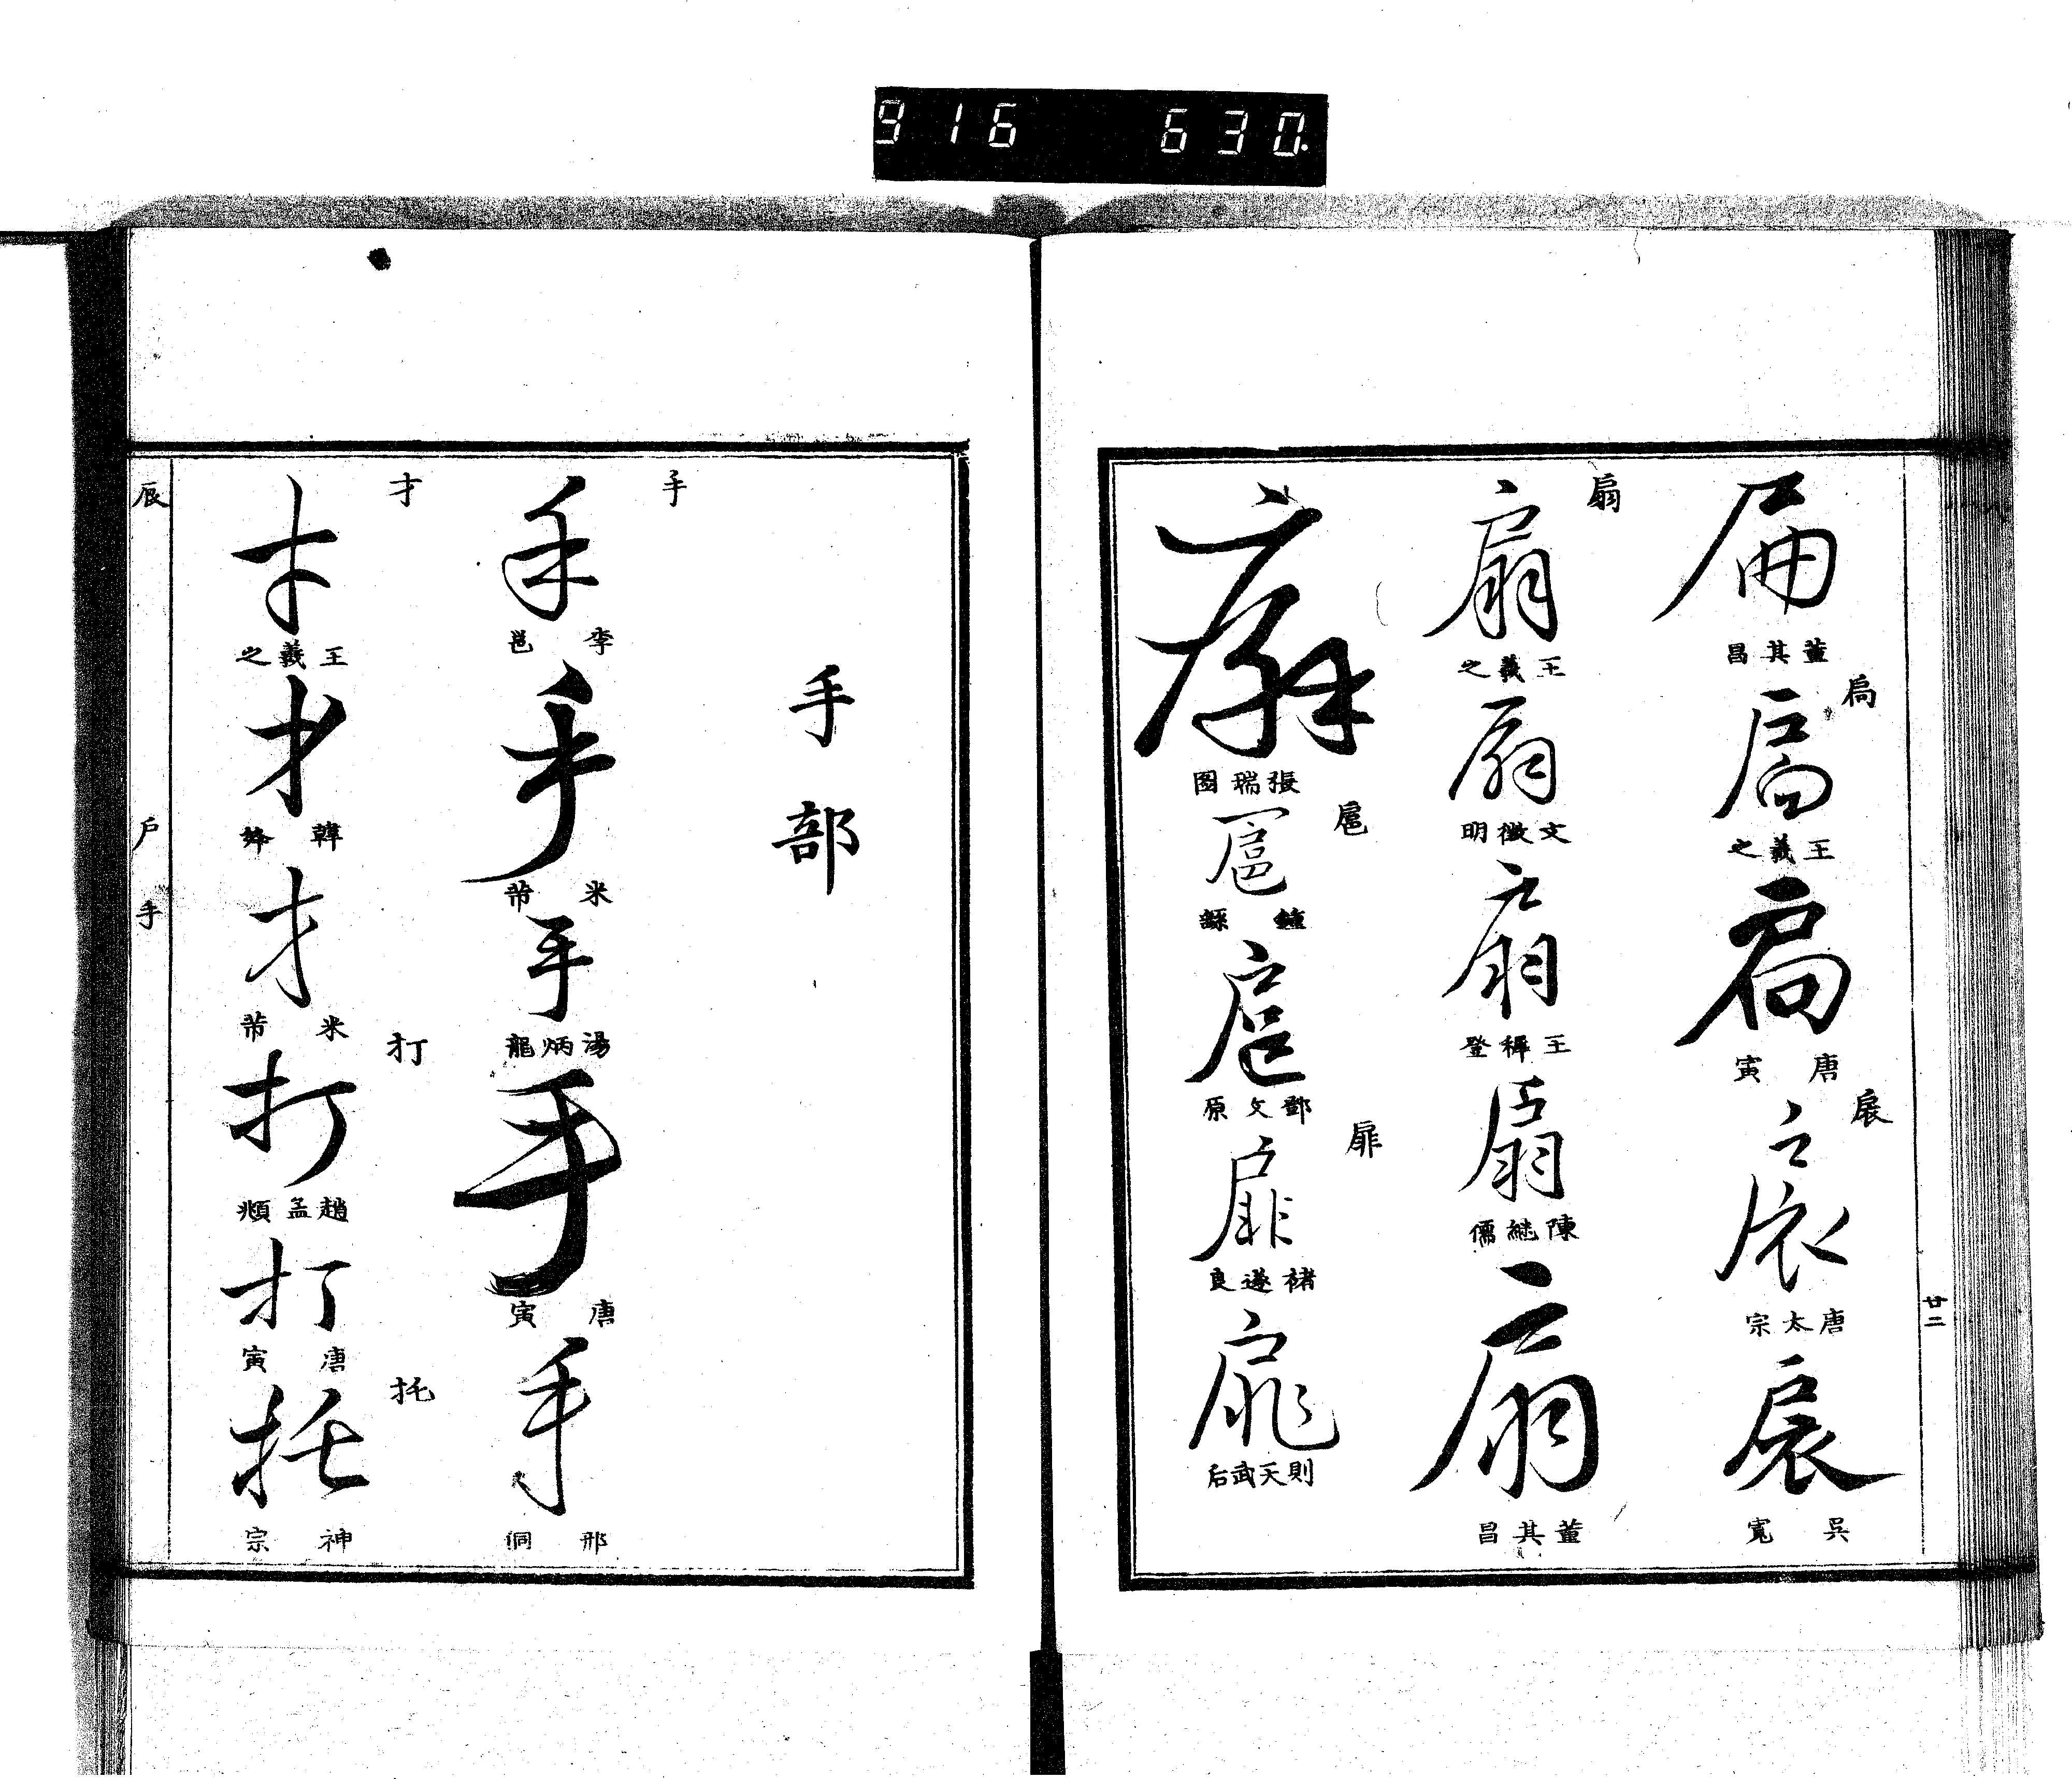 916 630.
扁
董其昌
扃
扃
王羲之
扃
唐寅
扆
扆
唐太宗
扆
吳寬
廿二
扇
扇
王羲之
扇
文徵明
扇
王穉登
扇
陳繼儒
扇
董其昌
扇
張瑞圖
扈
扈
鍾繇
扈
鄧文原
扉
扉
褚遂良
扉
則天武后
手部
手
手
李邕
手
米芾
手
湯炳龍
手
唐寅
手
邢侗
才
才
王羲之
才
韓
才
米芾
打
打
趙孟頫
打
唐寅
托
托
神宗
辰
戶
手